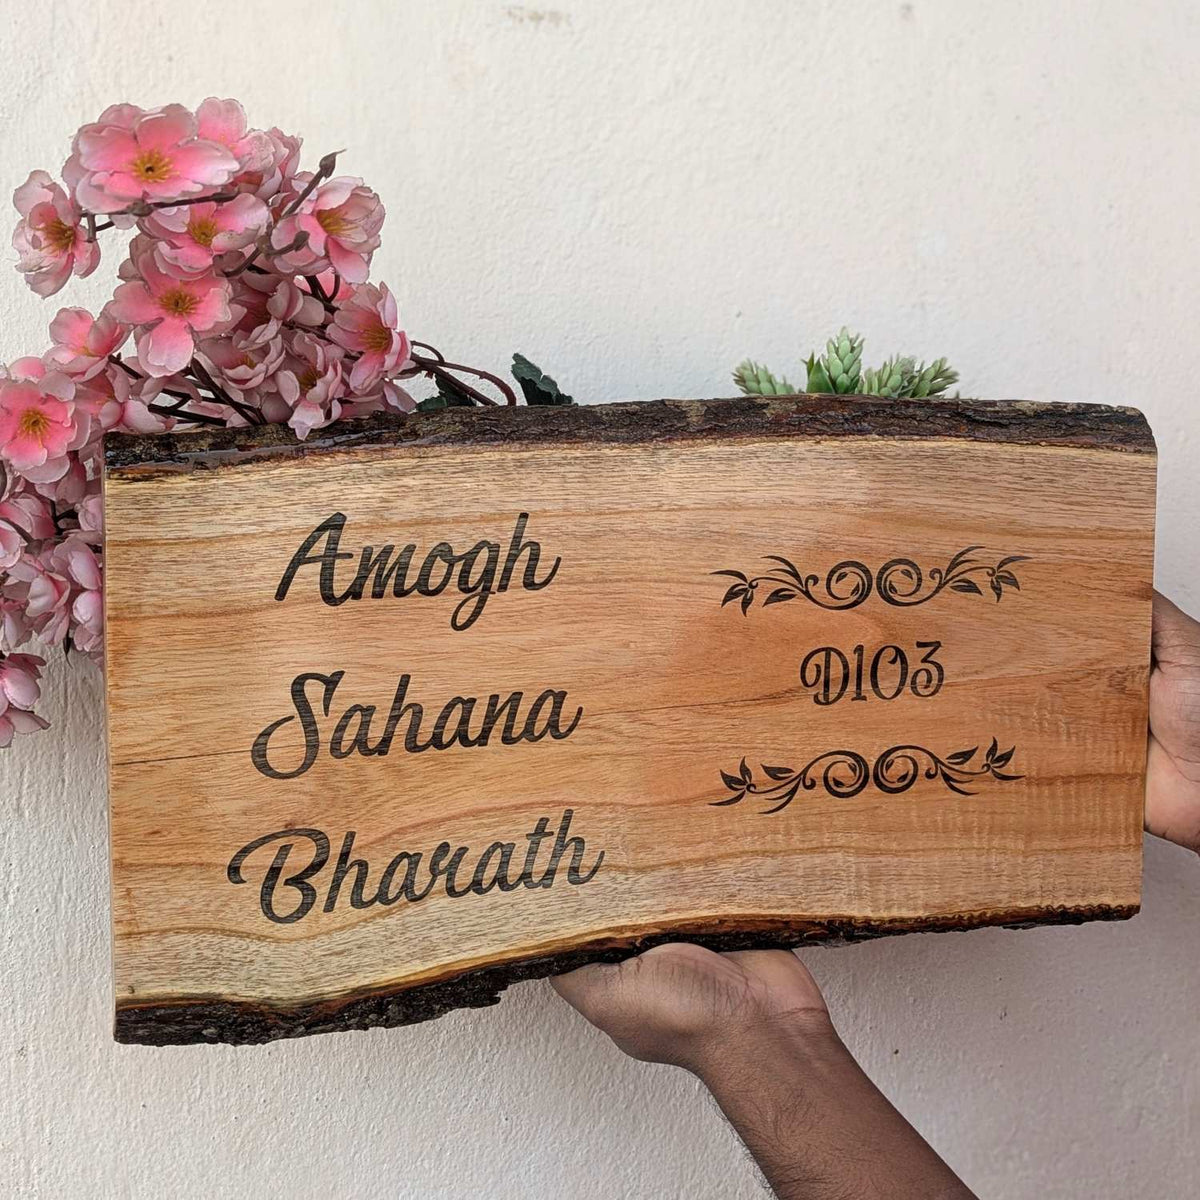 Amogh
Sahana
Bharath
D103